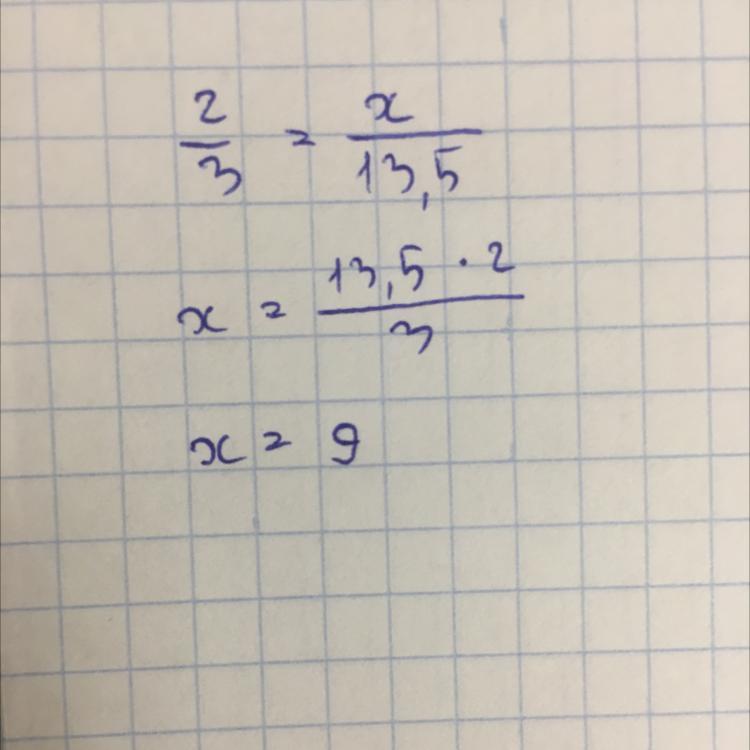 2/3 = x/13,5
x = 13,5 · 2/3
x = 9